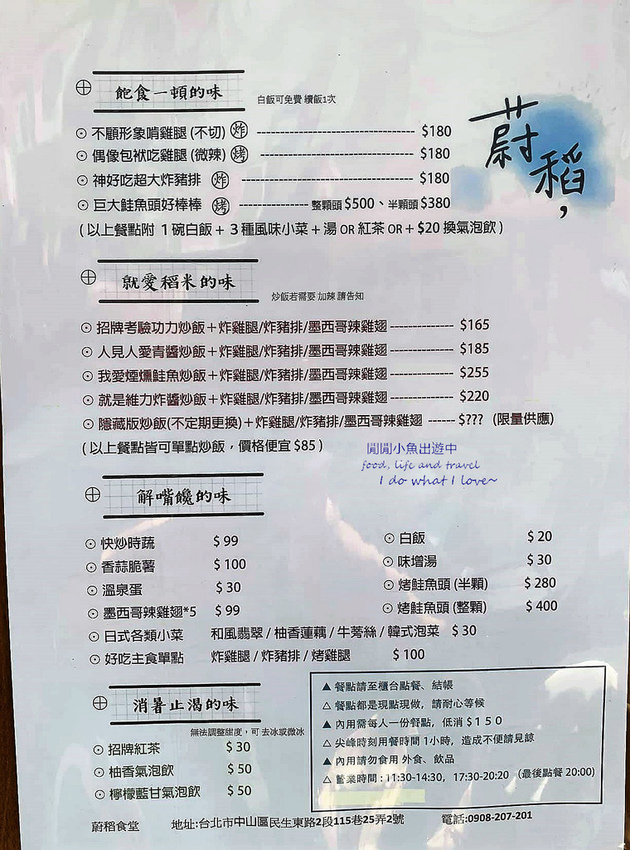 飽食一頓的味
白飯可免費 續飯1次
蔚稻,
不顧形象啃雞腿 (不切) 炸 $180
偶像包袱吃雞腿 (微辣) 烤 $180
神好吃超大炸豬排 炸 $180
巨大鮭魚頭好棒棒 烤 整顆頭 $500、半顆頭 $380
(以上餐點附 1碗白飯+3種風味小菜+湯 OR 紅茶 OR+$20 換氣泡飲)
就愛稻米的味
炒飯若需要 加辣 請告知
招牌考驗功力炒飯+炸雞腿/炸豬排/墨西哥辣雞翅 $165
人見人愛青醬炒飯+炸雞腿/炸豬排/墨西哥辣雞翅 $185
我愛煙燻鮭魚炒飯+炸雞腿/炸豬排/墨西哥辣雞翅 $255
就是維力炸醬炒飯+炸雞腿/炸豬排/墨西哥辣雞翅 $220
隱藏版炒飯(不定期更換)+炸雞腿/炸豬排/墨西哥辣雞翅 $??? (限量供應)
(以上餐點皆可單點炒飯,價格便宜 $85)
閒閒小魚出遊中
food, life and travel
I do what I love~
解嘴饞的味
快炒時蔬 $ 99
香蒜脆薯 $ 100
溫泉蛋 $ 30
墨西哥辣雞翅*5 $ 99
白飯 $ 20
味增湯 $ 30
烤鮭魚頭 (半顆) $ 280
烤鮭魚頭 (整顆) $ 400
日式各類小菜 和風翡翠 / 柚香蓮藕 / 牛蒡絲 / 韓式泡菜 $ 30
好吃主食單點 炸雞腿 / 炸豬排 / 烤雞腿 $ 100
消暑止渴的味
無法調整甜度,可 去冰或微冰
招牌紅茶 $ 30
柚香氣泡飲 $ 50
檸檬藍甘氣泡飲 $ 50
▲ 餐點請至櫃台點餐、結帳
△ 餐點都是現點現做,請耐心等候
▲ 內用需每人一份餐點,低消 $150
△ 尖峰時刻用餐時間 1小時,造成不便請見諒
▲ 內用請勿食用 外食、飲品
△ 營業時間:11:30-14:30,17:30-20:20 (最後點餐 20:00)
蔚稻食堂 地址:台北市中山區民生東路2段115巷25弄2號 電話:0908-207-201